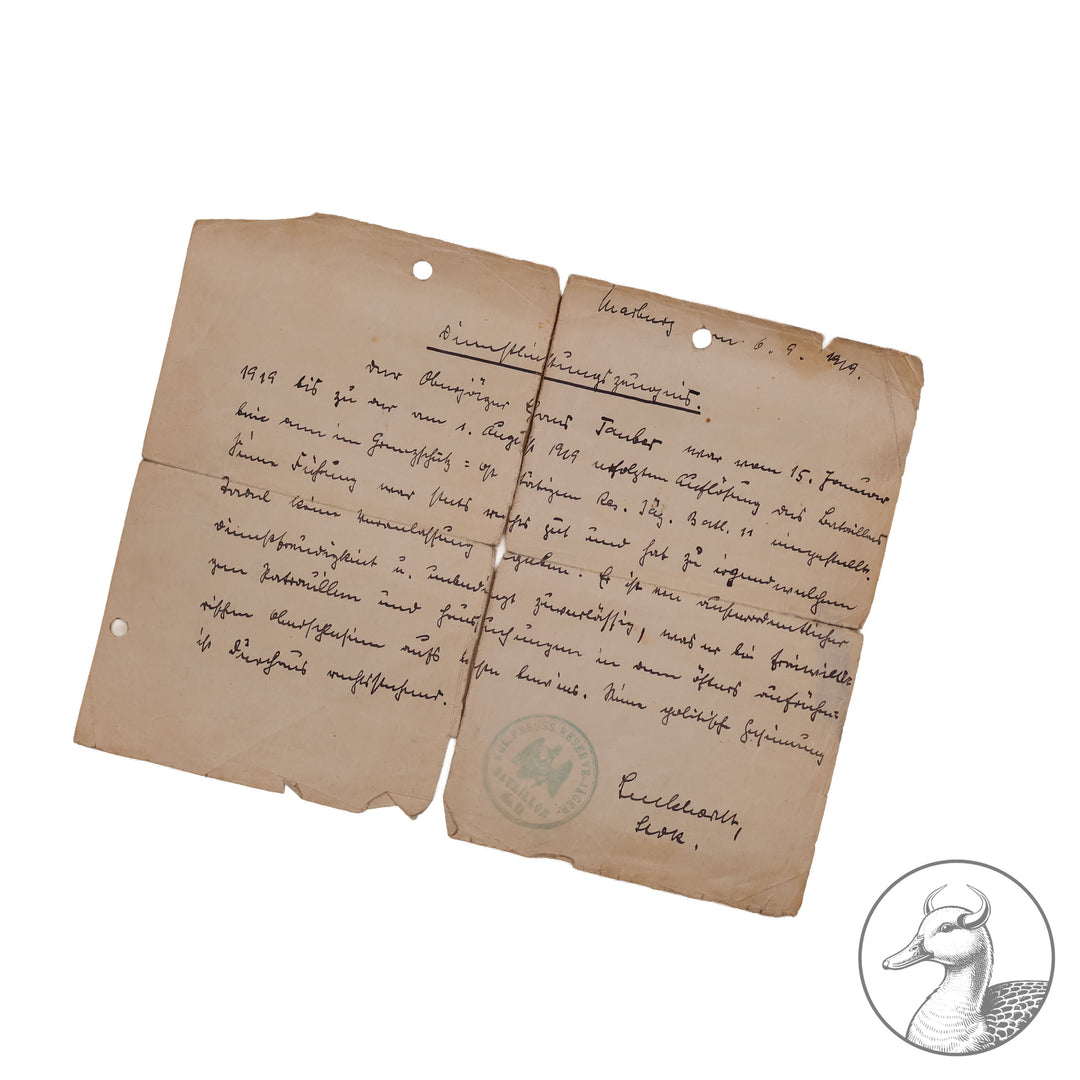 Marburg den 6. 9. 1919.
Dienstleistungszeugnis.
Der Oberjäger Hans Tauber war vom 15. Januar
1919 bis zu der am 1. August 1919 erfolgten Auflösung des Bataillons
beim im Grenzschutz = Ost tätigen Res. Jäg. Batl. 11 eingestellt.
Seine Führung war stets recht gut und hat zu irgendwelchem
Tadel keine Veranlassung gegeben. Er ist von außerordentlicher
Dienstfreudigkeit u. unbedingt zuverlässig, was er bei freiwilli-
gen Patrouillen und Haussuchungen in dem öfters aufrühre-
rischen Oberschlesien aufs beste bewies. Seine politische Gesinnung
ist durchaus rechtsstehend.
KGL. PREUSS. RESERVE-JÄGER-
BATAILLON
No. 11